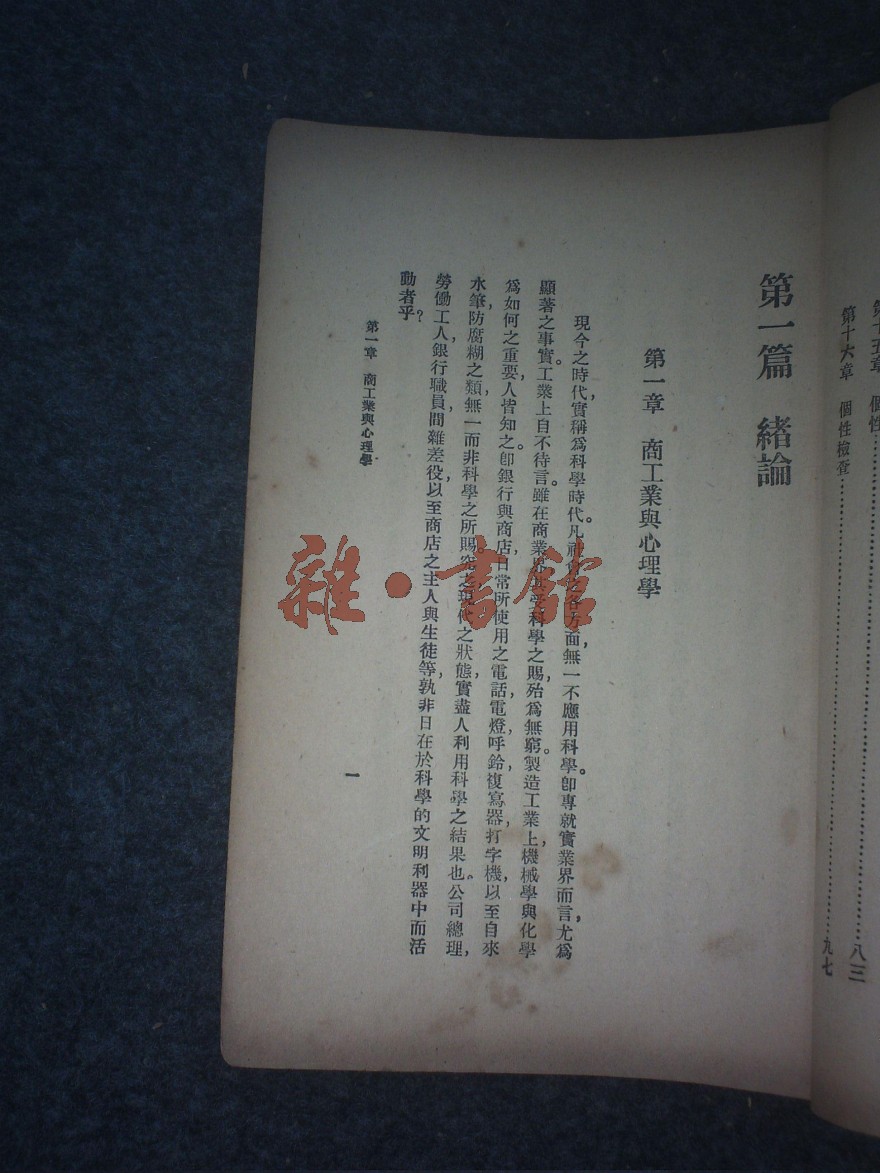 第十五章 個性……八三
第十六章 個性檢查……九七
第一篇 緒論
第一章 商工業與心理學
現今之時代，實稱爲科學時代。凡社會之各方面，無一不應用科學。卽專就實業界而言，尤爲
顯著之事實。工業上自不待言。雖在商業界其受科學之賜，殆爲無窮。製造工業上，機械學與化學
爲如何之重要，人皆知之。卽銀行與商店，日常所使用之電話，電燈，呼鈴，複寫器，打字機，以至自來
水筆，防腐糊之類，無一而非科學之所賜。究之現代之狀態，實盡人利用科學之結果也。公司總理，
勞働工人，銀行職員，間雜差役，以至商店之主人與生徒等，孰非日在於科學的文明利器中而活
動者乎？
第一章 商工業與心理學
一
雜·書館